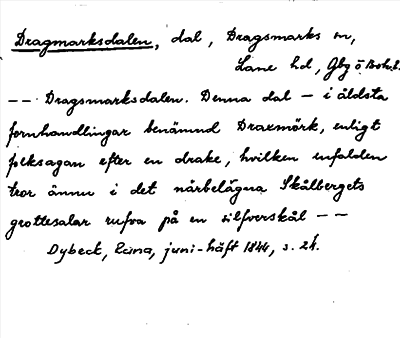 Dragmarksdalen, dal, Dragsmarks sn,
Lane hd, Gbg o Boh.l.
-- Dragsmarksdalen. Denna dal – i äldsta
fornhandlingar benämnd Draxmörk, enligt
folksagan efter en drake, hvilken enfalden
tror ännu i det närbelägna Skålbergets
grottesalar rufva på en silfverskål --
Dybeck, Runa, juni-häft 1844, s. 24.